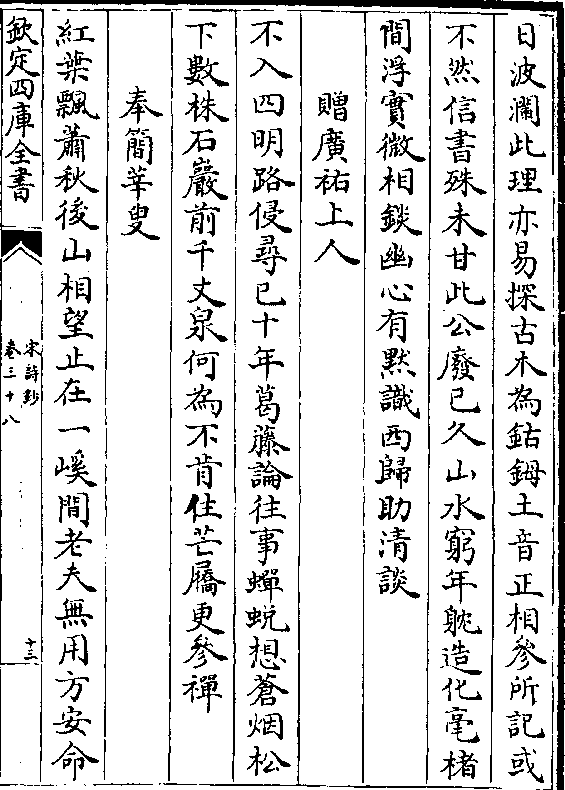 日波瀾此理亦易探古木為鈷鉧土音正相參所記或
不然信書殊未甘此公廢已久山水窮年躭造化毫楮
間浮實微相錟幽心有默識西歸助清談
贈廣祐上人
不入四明路侵尋已十年葛藤論往事蟬蛻想蒼烟松
下數株石巖前千丈泉何為不肯住芒屩更參禪
奉簡莘叟
紅葉飄蕭秋後山相望止在一嵠間老夫無用方安命
欽定四庫全書
宋詩鈔
卷三十八
十三